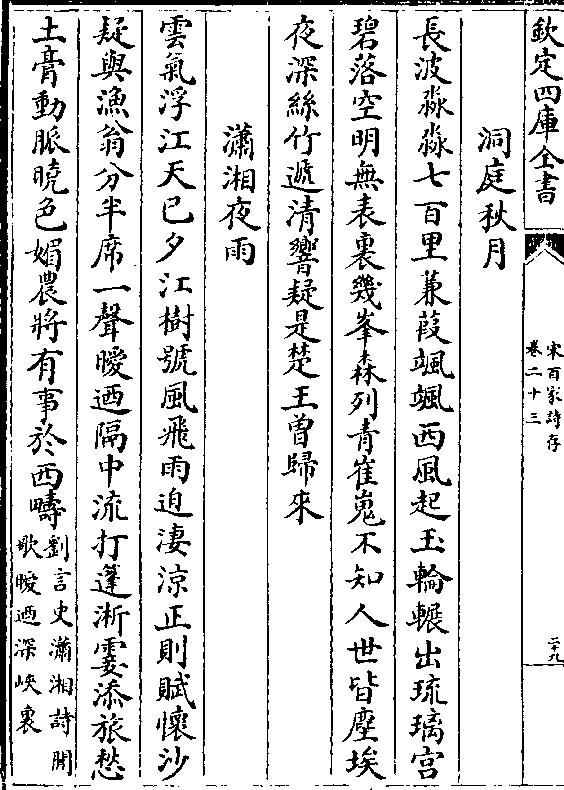 欽定四庫全書
宋百家詩存
卷二十三
二十九
洞庭秋月
長波淼淼七百里蒹葭颯颯西風起玉輪輾出琉璃宫
碧落空明無表裏幾峯森列青崔嵬不知人世皆塵埃
夜深絲竹遞清響疑是楚王曽歸來
瀟湘夜雨
雲氣浮江天已夕江樹號風飛雨迫淒涼正則賦懷沙
疑與漁翁分半席一聲曖迺隔中流打篷淅霎添旅愁
土膏動脈曉色媚農將有事於西疇劉言史瀟湘詩閒
歌曖迺深峽裏